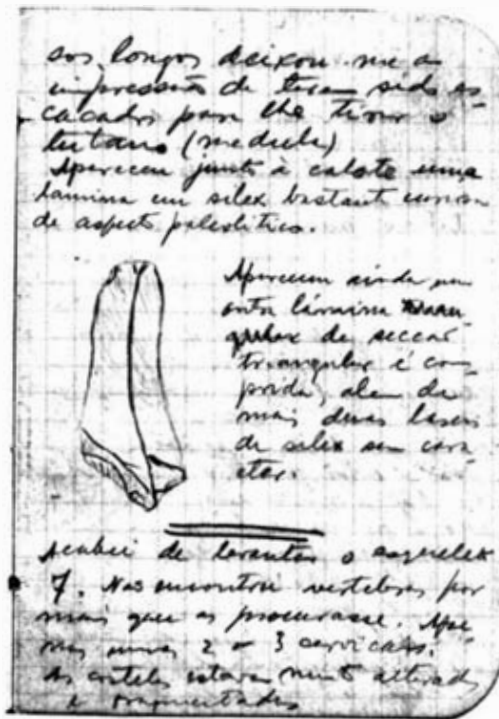 sos longos deixou-me a
impressão de terem sido es-
cacados para lhe tirar o
tutano (medula)
Apareceu junto à calote uma
lamina em silex bastante
de aspecto paleolitico.
Apareceu ainda um
outra lámina
de seccao
triangular e com-
prida, alem de
mais duas lascas
de silex sem cara-
cter.
Acabei de levantar o esquelete
7. Nas encontrei vertebras por
mais que as procurasse. Ape-
nas umas 2 ou 3 cervicais.
As costelas estavam muito alteradas
e fragmentadas